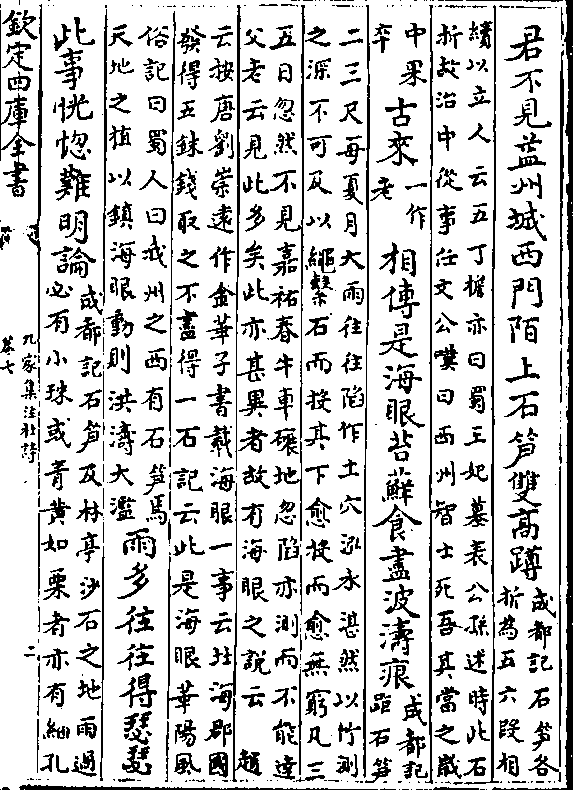 君不見益州城西門陌上石筍雙高蹲
成都記石筍各
折為五六段相
續以立人云五丁擔亦曰蜀王妃墓表公孫述時此石
折故治中從事任文公嘆曰西州智士死吾其當之歲
中果
卒
古來
一作
老
相傳是海眼苔蘚食盡波濤痕
成都記
距石筍
二三尺每夏月大雨往往陷作土穴泓水湛然以竹測
之深不可及以繩繫石而投其下愈投而愈無窮凡三
五日忽然不見嘉祐春牛車碾地忽陷亦測而不能達
父老云見此多矣此亦甚異者故有海眼之說云 趙
云按唐劉崇遠作金華子書載海眼一事云北海郡國
發得五銖錢取之不盡得一石記云此是海眼華陽風
俗記曰蜀人曰我州之西有石筍焉
天地之植以鎮海眼動則洪濤大濫
雨多往往得瑟瑟
此事恍惚難明論
成都記石筍及林亭沙石之地雨過
必有小珠或青黃如粟者亦有細孔
欽定四庫全書
九家集注杜詩
卷七
二